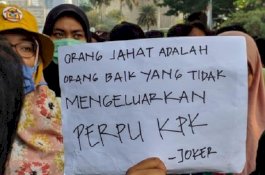 ORANG JAHAT ADALAH
ORANG BAIK YANG TIDAK
MENGELUARKAN
PERPU KPK
-JOKER